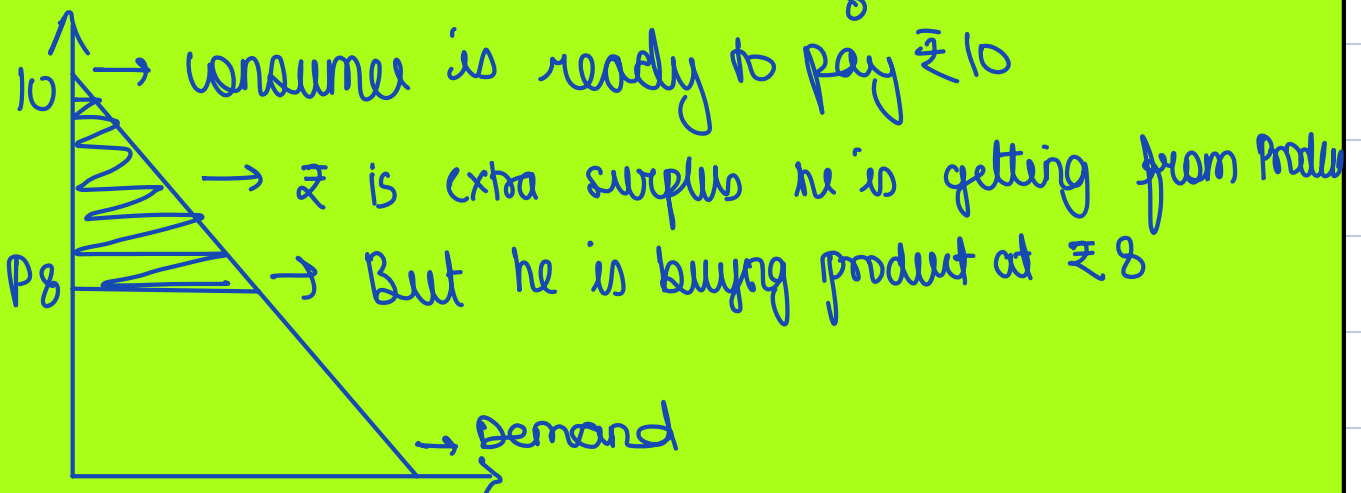 10 → consumer is ready to pay ₹10
→ ₹ is extra surplus he is getting from Produ
P8 → But he is buying product at ₹8
→ Demand